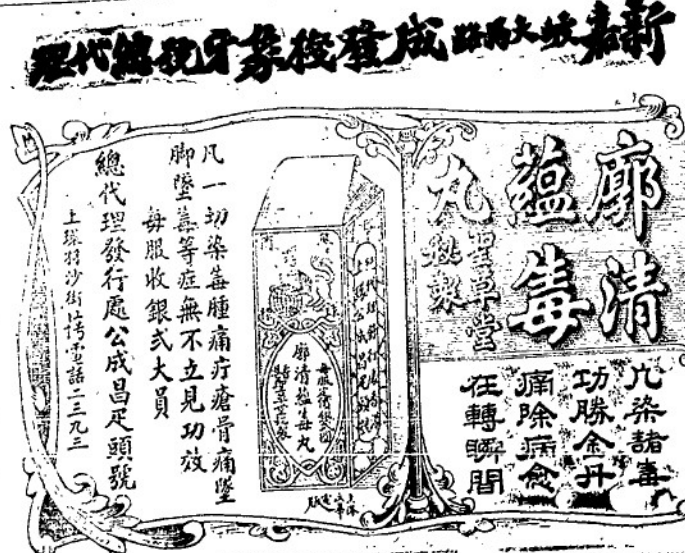 新嘉坡大馬路成發棧象牙號總代理
廓清
蘊毒
丸
聖草堂
秘製
凡染諸毒
功勝金丹
痛除病愈
在轉瞬間
廓清蘊毒丸
凡一切染毒腫痛疔瘡骨痛墜
脚墜毒等症無不立見功效
每服收銀式大員
總代理發行處公成昌疋頭號
上環孖沙街 號電話二三九三